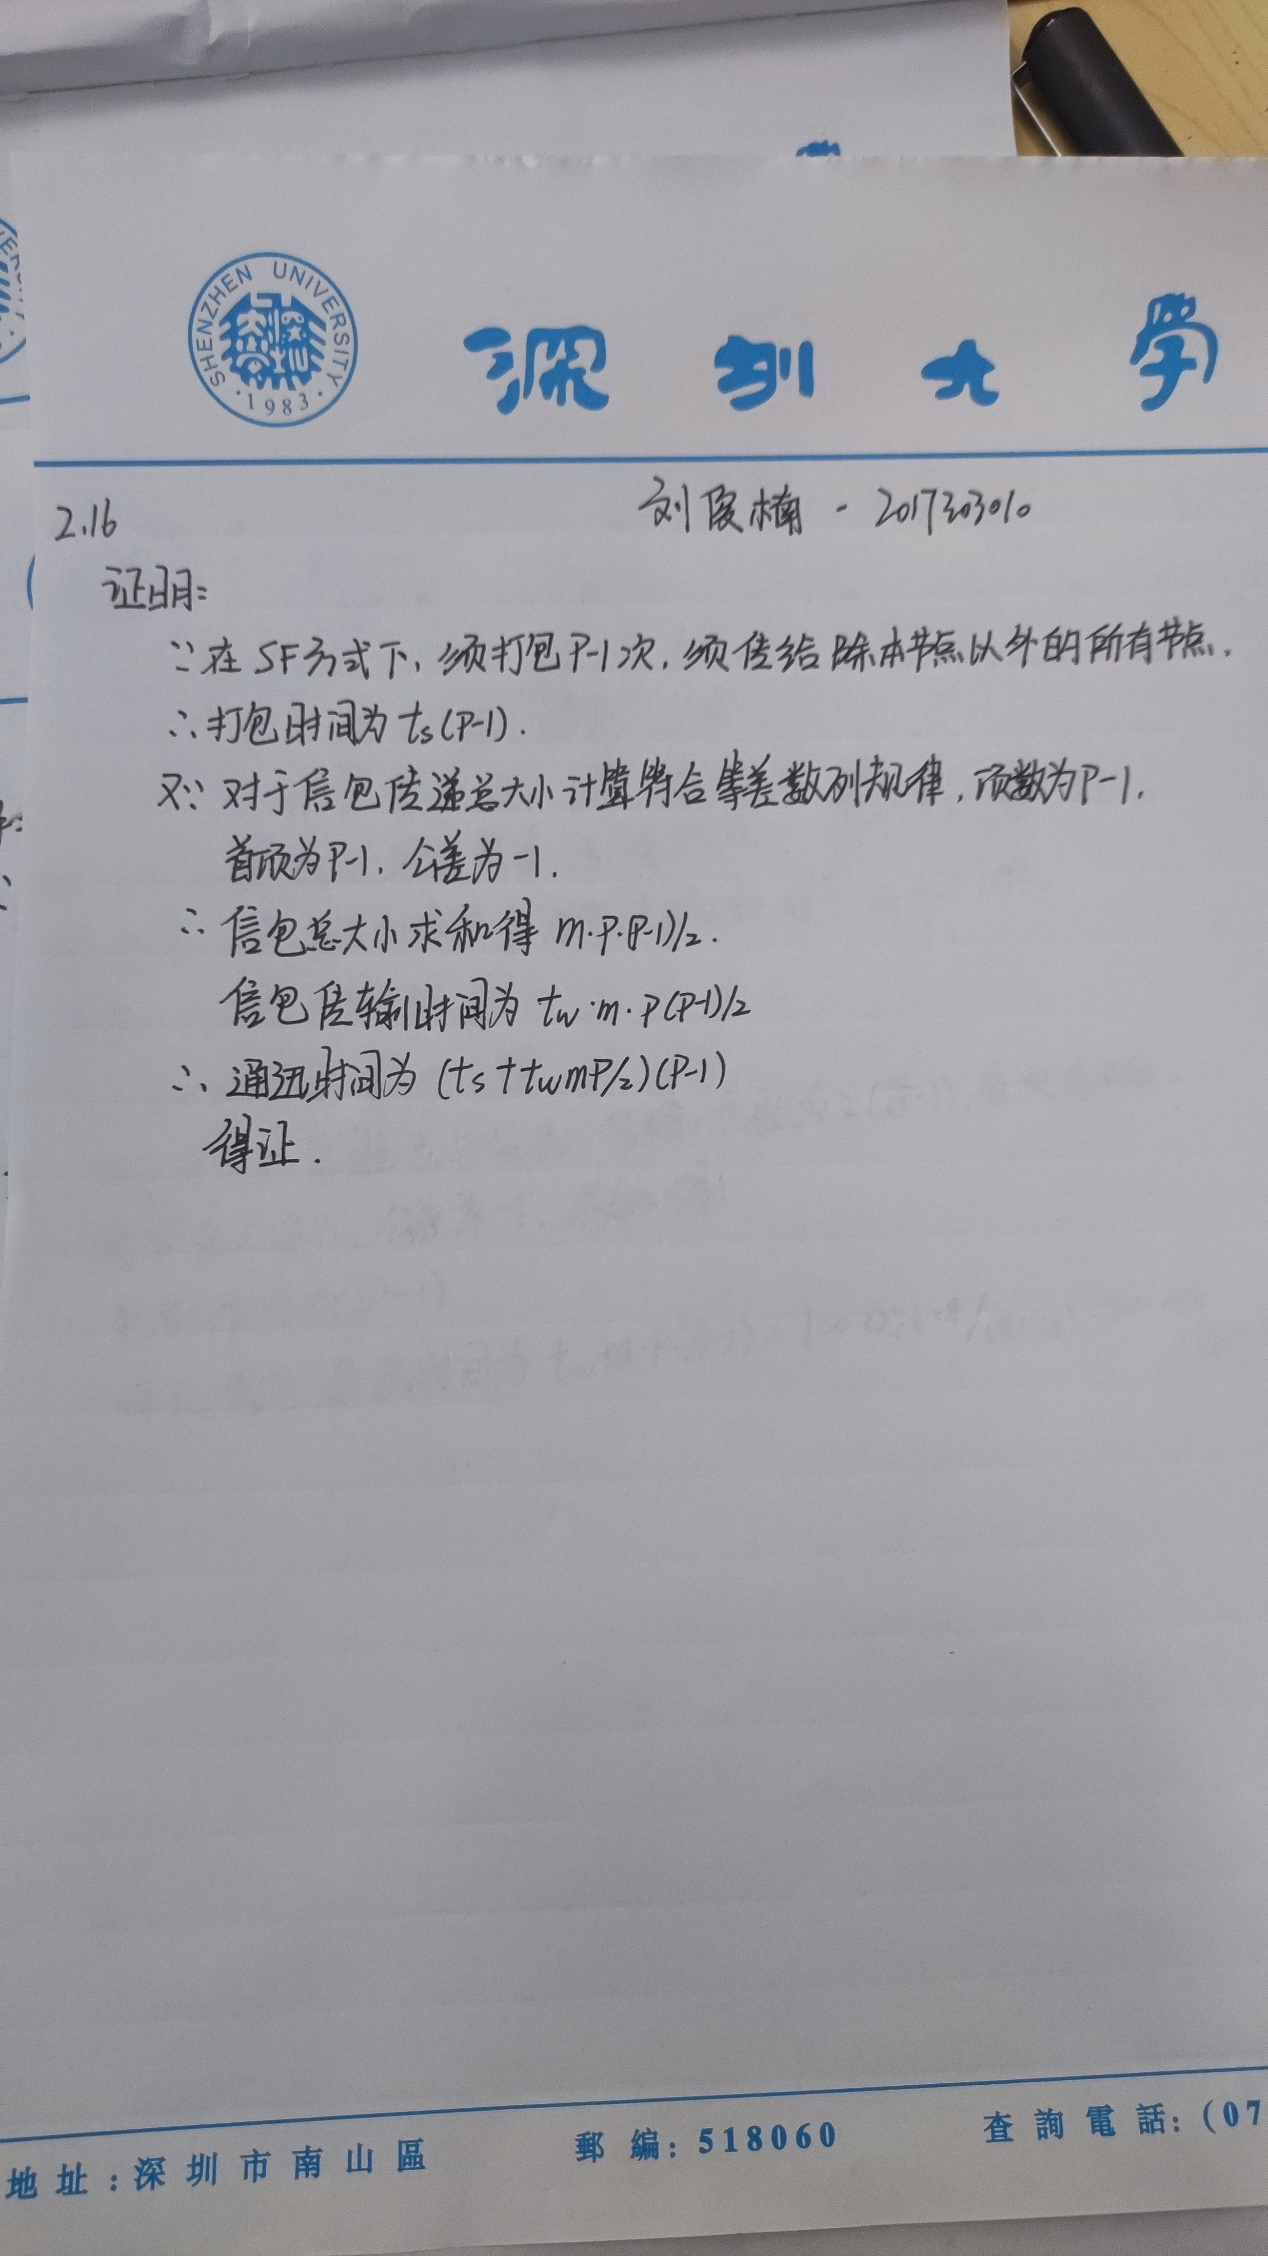 SHENZHEN UNIVERSITY
·1983·
深圳大学
2.16
刘俊楠 - 2017303010
证明:
∵在SF方式下,须打包P-1次,须传给除本节点以外的所有节点.
∴打包时间为ts(P-1).
又∵对于信包传递总大小计算符合等差数列规律,项数为P-1,
首项为P-1,公差为-1.
∴信包总大小求和得 m·P·(P-1)/2.
信包传输时间为 tw·m·P(P-1)/2
∴通迅时间为 (ts+twmP/2)(P-1)
得证.
地址:深圳市南山區
郵編:518060
查詢電話:(07